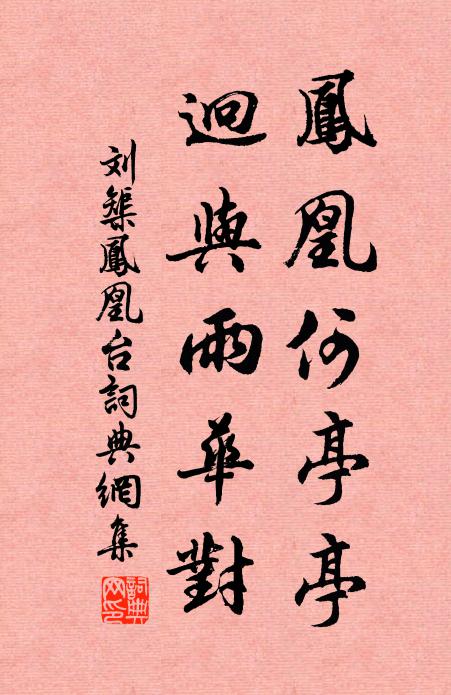 鳳凰何亭亭
迥與雨華對
刘榘鳳凰台詞典網集
詞典网印